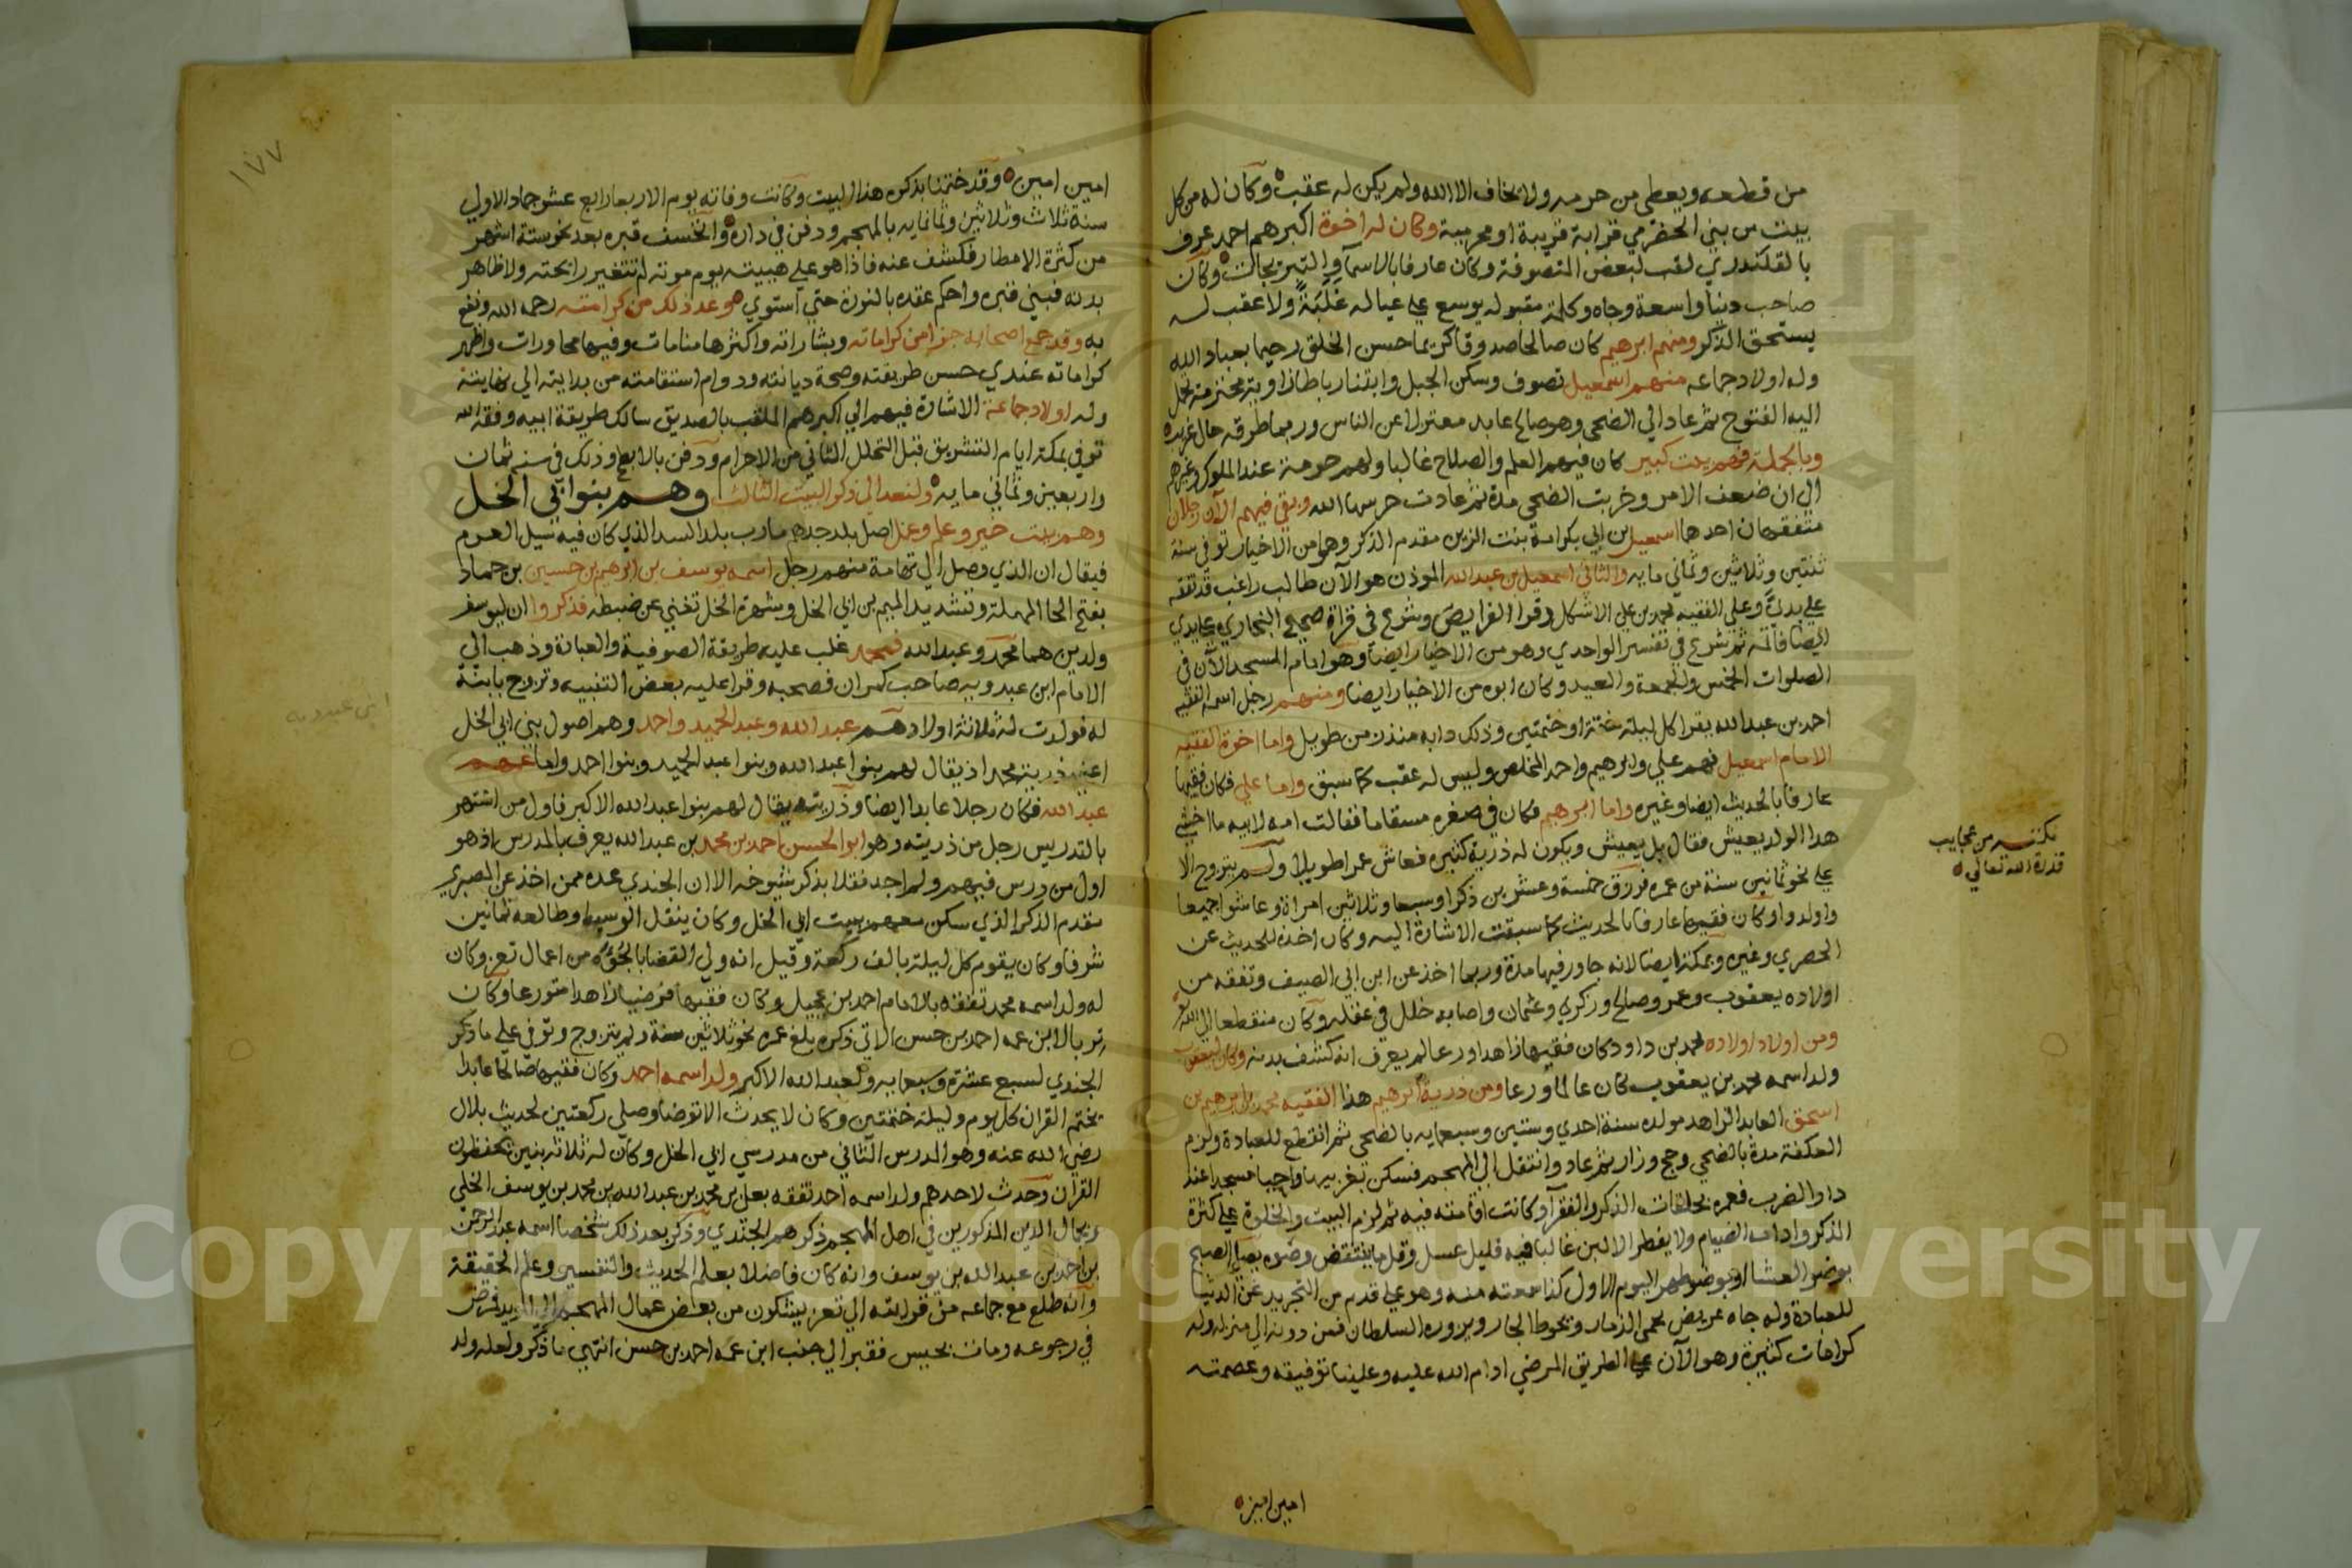 من قطعه ويعطي من حرمه ولا يخاف الا الله ولم يكن له عقب وكان له من كل
بيت من بني الحضرمي قرابة قريبة او محرمية وكان له اخوة اكبرهم احمد عرف
بالقلندري لقب لبعض المتصوفة وكان عارفا بالاسما والتبريجات وكان
صاحب دنيا واسعة وجاه وكلمة مقبوله يوسع على عياله غلبة ولا عقب له
يستحق الذكر ومنهم ابرهيم كان صالحا صدوقا كريما حسن الخلق رحيما بعباد الله
وله اولاد جماعه منهم اسمعيل تصوف وسكن الجبل وابتنا رباطا
اليه الفتوح ثم عاد الي الضحي وهو صالح عابد معتزلا عن الناس وربما طرقه حال غريبه
وبالجملة فهم بيت كبير كان فيهم العلم والصلاح غالبا ولهم حرمة عند الملوك وغيرهم
الي ان ضعف الامر وخربت الضحي مدة ثم عادت حرسها الله وبقي فيهم الآن رجلان
متفقهان احدها اسمعيل بن ابي بكر امه بنت الزين مقدم الذكر وهو من الاخيار توفي سنة
ثنتين وثلاثين وثماني مايه والثاني اسمعيل بن عبد الله الموذن هو الآن طالب راغب قد تفقه
علي يدي وعلي الفقيه محمد بن علي الاشكل وقرا الفرايض وشرع في قراة صحيح البخاري علي يدي
ايضا فاتمه ثم شرع في تفسير الواحدي وهو من الاخيار ايضا وهو امام المسجد الآن في
الصلوات الخمس والجمعة والعيد وكان ابوه من الاخيار ايضا ومنهم رجل اسمه الفقيه
احمد بن عبد الله يقرا كل ليلة ختمة او ختمتين وذلك دابه منذ زمن طويل واما اخوة الفقيه
الامام اسمعيل فهم علي وابرهيم واحمد المخلص وليس له عقب كما سبق واما علي فكان فقيها
عارفا بالحديث ايضا وغيره واما ابرهيم فكان في صغره مسقاما فقالت امه لابيه ما اخشي
هذا الولد يعيش فقال بل يعيش ويكون له ذرية كثيره فعاش عمرا طويلا ولم يتزوج الا
علي نحو ثمانين سنة من عمره فرزق خمسة وعشرين ذكرا وسبعا وثلاثين امراة وعاشوا جميعا
واولدوا وكان فقيها عارفا بالحديث كما سبقت الاشارة اليه وكان اخذه للحديث عن
الحصري وغيره وبمكة ايضا لانه جاور فيها مدة وربما اخذ عن ابن ابي الصيف وتفقه من
اولاده يعقوب وعمر وصالح وزكري وعثمان واصابه خلل في عقله وكان منقطعا الي الله
ومن اولاد اولاده محمد بن داود كان فقيها زاهدا ورعا لم يعرف انه كشف بدنه وكان ليعقوب
ولد اسمه محمد بن يعقوب كان عالما ورعا ومن ذرية ابرهيم هذا الفقيه محمد بن ابرهيم بن
اسحق العابد الزاهد مولده سنة احدي وستين وسبعمايه بالضحي ثم انقطع للعبادة ولزم
العكفة مدة بالضحي وحج وزار ثم عاد وانتقل الي المهجم فسكن بغربيها واحيا مسجدا عند
دار الضرب فعمره بحلقات الذكر والفقرآ وكانت اقامته فيه ثم لزم البيت والخلوة علي كثرة
الذكر وادامه الصيام ولا يفطر الا لبن غالبا فيه قليل عسل وقل ما ينتقض وضوه يصلي الصبح
بوضو العشا او بوضو ظهر اليوم الاول كذا سمعته منه وهو علي قدم من التجريد عن الدنيا
للعبادة وله جاه عريض يحمي الذمار ويحوط الجار ويزوره السلطان فمن دونه الي منزله وله
كرامات كثيرة وهو الآن علي الطريق المرضي ادام الله عليه وعلينا توفيقه وعصمته
امين امين
من عجايب
قدرة الله تعالي
١٧٧
امين امين وقد ختمنا بذكره هذا البيت وكانت وفاته يوم الاربعا رابع عشر جماد الاولي
سنة ثلاث وثلاثين وثمانمايه بالمهجم ودفن في داره وانخسف قبره بعد نحو ستة اشهر
من كثرة الامطار فكشف عنه فاذا هو علي هيبته يوم موته لم تتغير رايحته ولا ظاهر
بدنه فبني قبره واحكم عقده بالنورة حتي استوي وعد ذلك من كرامته رحمه الله ونفع
به وقد جمع اصحابه جزا من كراماته وبشاراته واكثرها منامات وفيها محاورات واظهر
كراماته عندي حسن طريقته وصحة ديانته ودوام استقامته من بدايته الي نهايته
وله اولاد جماعة الاشارة فيهم الي اكبرهم الملقب بالصديق سالك طريقة ابيه وفقه الله
توفي بمكة ايام التشريق قبل التحلل الثاني من الاحرام ودفن بالابطح وذلك في سنه ثمان
واربعين وثماني مايه ولنعد الي ذكر البيت الثالث وهم بنوا ابي الخل
وهم بيت خير وعلم وعمل اصل بلد جدهم مارب بلد السد الذي كان فيه سيل العرم
فيقال ان الذي وصل الي تهامة منهم رجل اسمه يوسف بن ابرهيم بن حسين بن حماد
بفتح الحا المهملة وتشديد الميم بن ابي الخل وشهرة الخل تغني عن ضبطه فذكروا ان ليوسف
ولدين هما محمد وعبد الله فمحمد غلب عليه طريقة الصوفية والعبادة وذهب الي
الامام ابن عبدويه صاحب كمران فصحبه وقرا عليه بعض التنبيه وتزوج بابنة
له فولدت له ثلاثة اولاد هم عبد الله وعبد الحميد واحمد وهم اصول بني ابي الخل
اعني ذرية محمد اذ يقال لهم بنوا عبد الله وبنوا عبد الحميد وبنوا احمد واما عمهم
عبد الله فكان رجلا عابدا ايضا وذريته يقال لهم بنوا عبد الله الاكبر فاول من اشتهر
بالتدريس رجل من ذريته وهو ابو الحسن احمد بن محمد بن عبد الله يعرف بالمدرس اذ هو
اول من درس فيهم ولم اجد نقلا بذكر شيوخه الا ان الجندي عده ممن اخذ عن الصبري
مقدم الذكر الذي سكن معهم بيت ابي الخل وكان ينقل الوسيط وطالعه ثمانين
شرفا وكان يقوم كل ليلة بالف ركعة وقيل انه ولي القضا بالجوه من اعمال تعز وكان
له ولد اسمه محمد تفقه بالامام احمد بن عجيل وكان فقيها فرضيا زاهدا متورعا وكان
تربا لابن عمه احمد بن حسن الاتي ذكره بلغ عمره نحو ثلاثين سنة ولم يتزوج وتوفي علي ما ذكر
الجندي لسبع عشرة وسبعمايه ولعبد الله الاكبر ولد اسمه احمد وكان فقيها صالحا عابدا
يختم القران كل يوم وليلة ختمتين وكان لا يحدث الا توضا وصلي ركعتين لحديث بلال
رضي الله عنه وهو المدرس الثاني من مدرسي ابي الخل وكان له ثلاثه بنين يحفظون
القرآن وحدث لاحدهم ولد اسمه احمد تفقه بعلي بن محمد بن عبد الله بن محمد بن يوسف الخلي
وبجمال الدين المذكورين في اهل المهجم ذكرهم الجندي وذكر بعد ذلك شخصا اسمه عبد الرحمن
بن احمد بن عبد الله بن يوسف وانه كان فاضلا بعلم الحديث والتفسير وعلم الحقيقة
وانه طلع مع جماعه من قرابته الي تعز يشكون من بعض عمال المهجم الي المويد فمرض
في رجوعه ومات بحيس فقبر الي جنب ابن عمه احمد بن حسن انتهي ما ذكر ولعله ولد
ابن عبدويه
Copyright © King Saud University